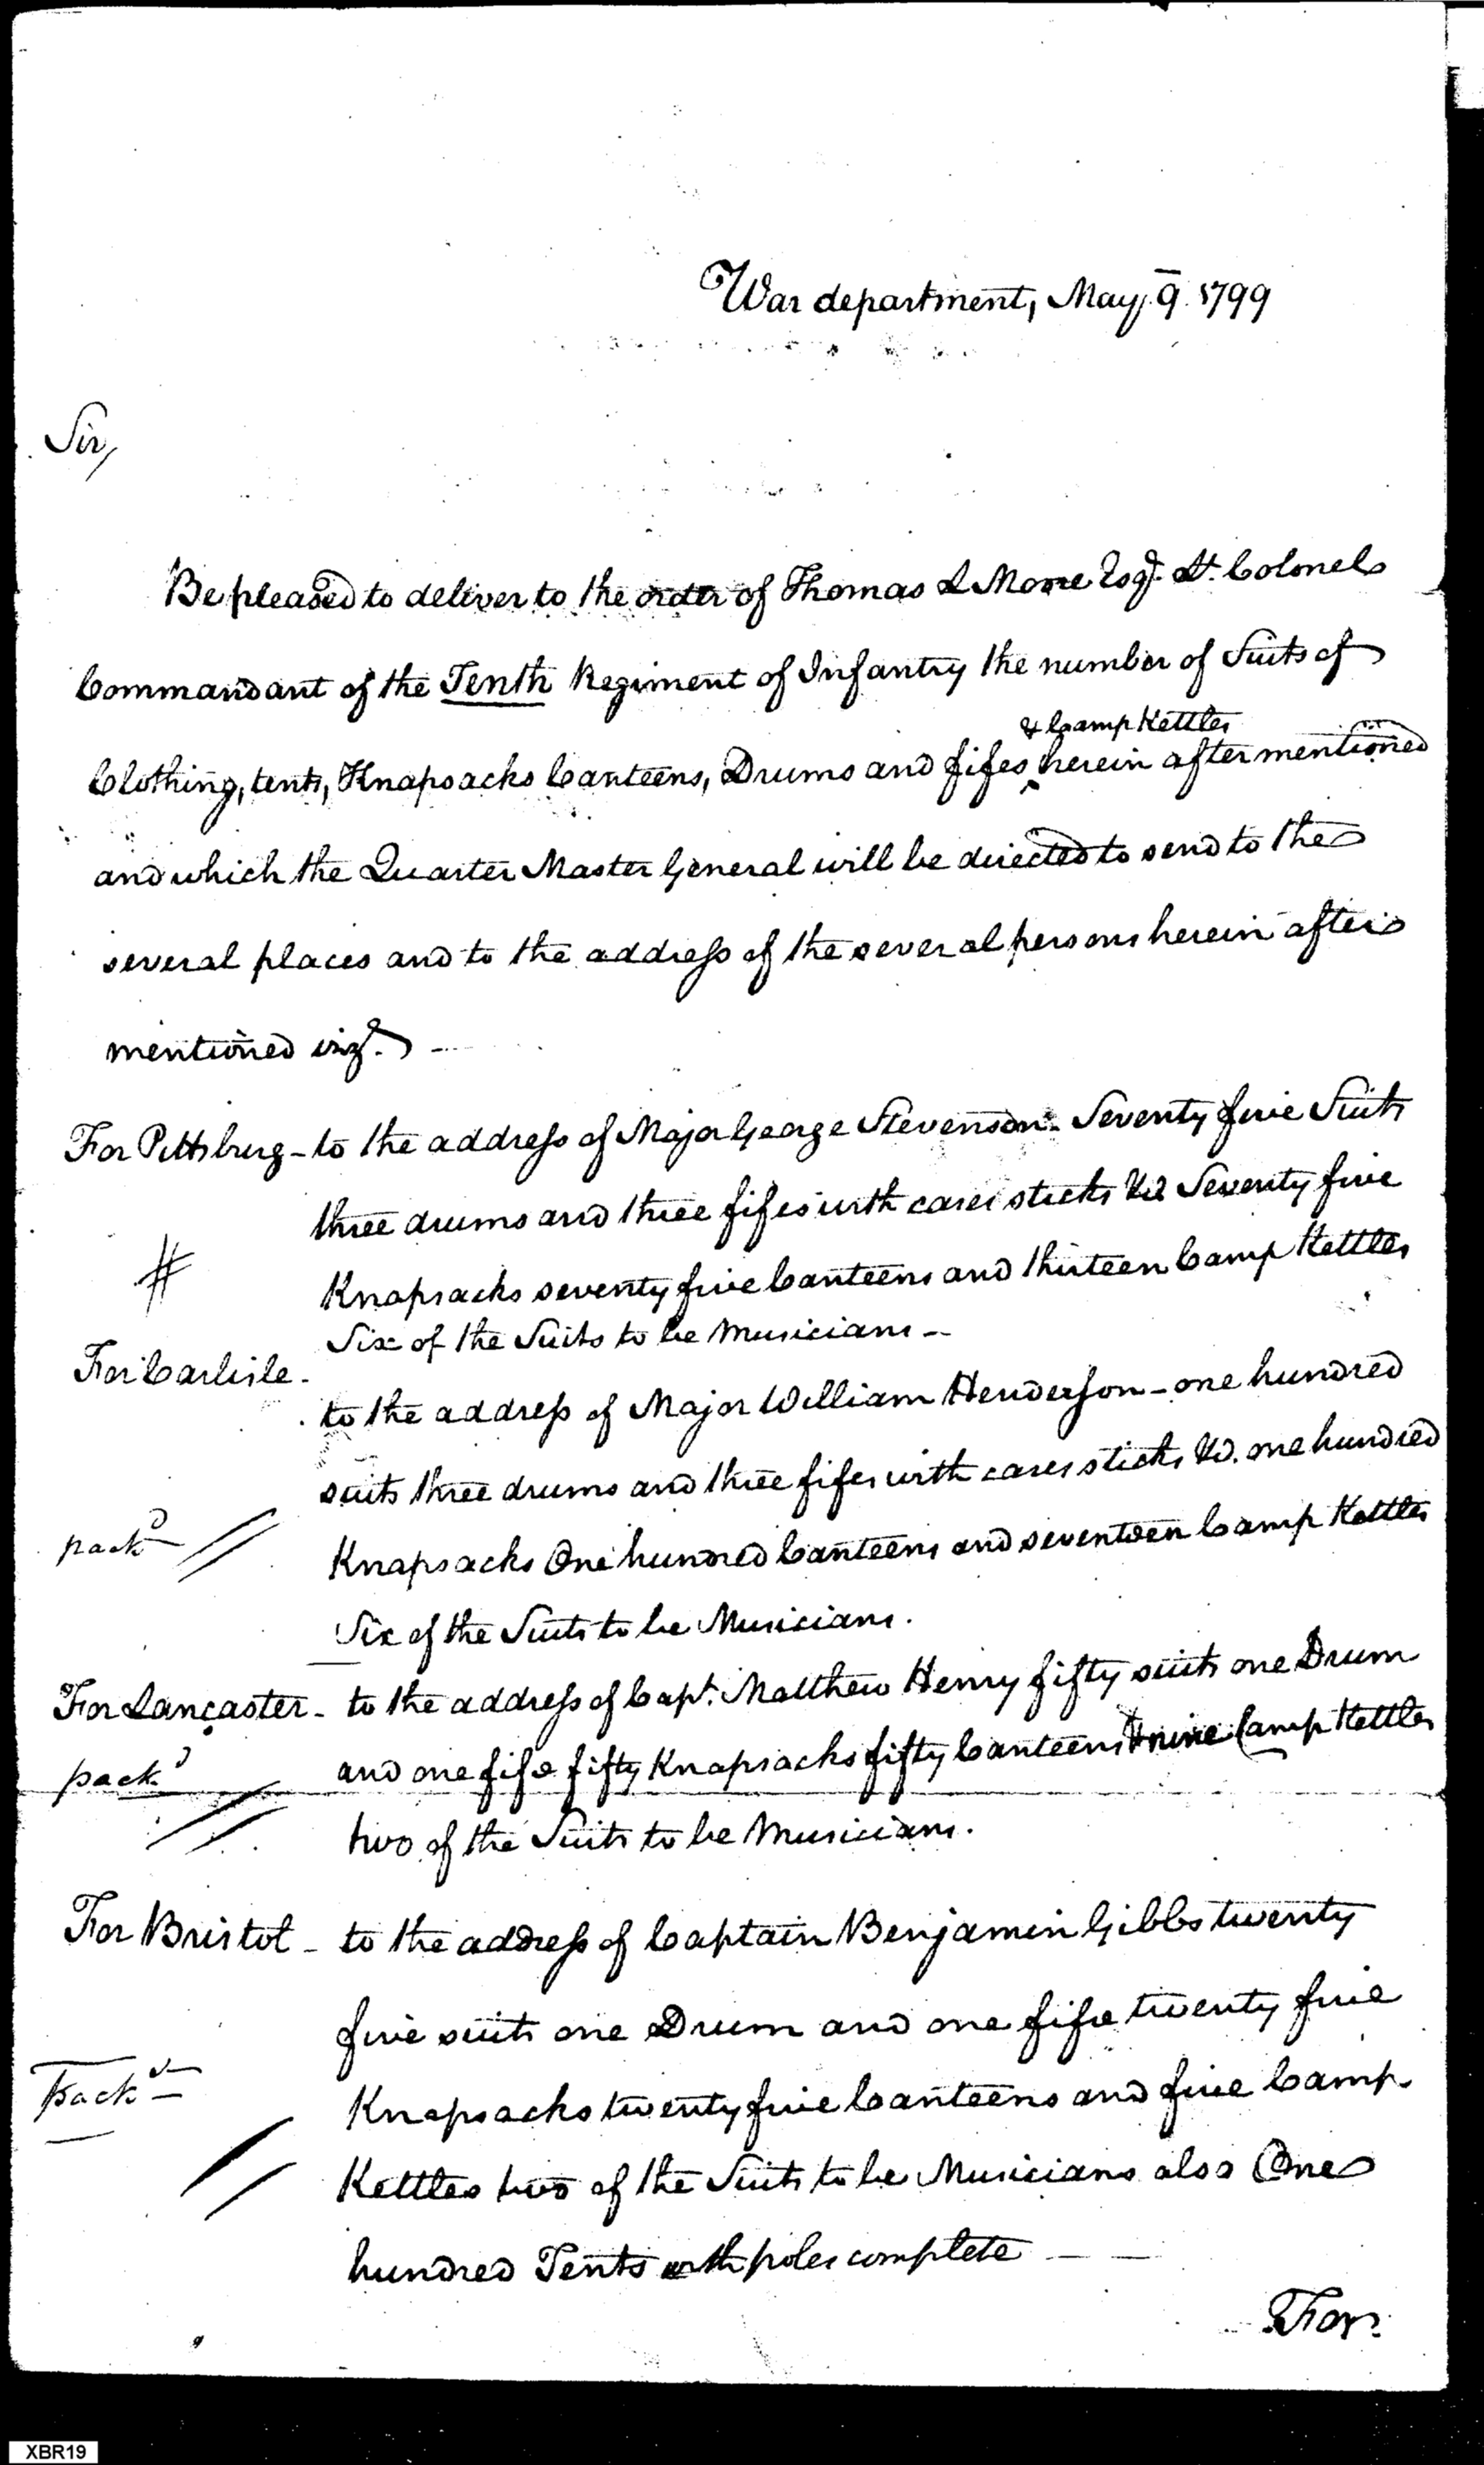 War department, May 9. 1799
Sir,
Be pleased to deliver to the order of Thomas L Moore Esqr. Lt. Colonel
Commandant of the Tenth Regiment of Infantry the number of Suits of
& Camp Kettles
Clothing, tents, Knapsacks Canteens, Drums and fifes ‸ herein after mentioned
and which the Quarter Master General will be directed to send to the
several places and to the address of the several persons herein after
mentioned vizt.
For Pittsburg - to the address of Major George Stevenson - Seventy five Suits
three drums and three fifes with cases sticks &c Seventy five
Knapsacks seventy five Canteens and thirteen Camp Kettles
#
Six of the Suits to be Musicians -
For Carlisle -
to the address of Major William Henderson - one hundred
suits three drums and three fifes with cases sticks &c. one hundred
packd
Knapsacks One hundred Canteens and seventeen Camp Kettles
Six of the Suits to be Musicians.
For Lancaster - to the address of Capt. Matthew Henry fifty suits one Drum
packd
and one fife fifty Knapsacks fifty Canteens & nine Camp Kettles
two of the Suits to be Musicians.
For Bristol - to the address of Captain Benjamin Gibbs twenty
five suits one Drum and one fife twenty five
Packd
Knapsacks twenty five Canteens and five Camp
Kettles two of the Suits to be Musicians also One
hundred Tents with poles complete - -
For
XBR19